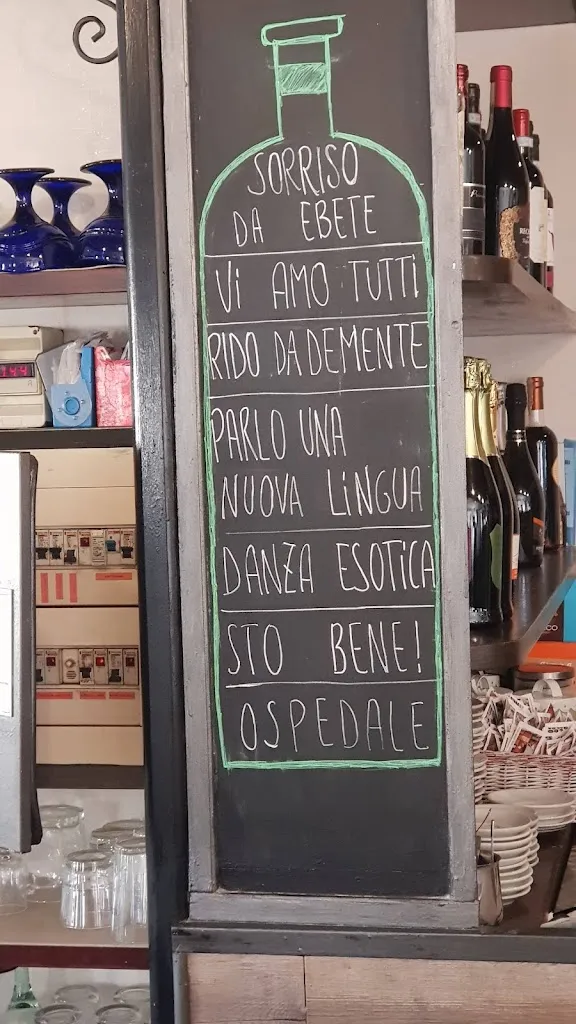 SORRISO
DA EBETE
Vi AMO TUTTi
RIDO DA DEMENTE
PARLO UNA
NUOVA LiNGUA
DANZA ESOTiCA
STO BENE!
OSPEDALE